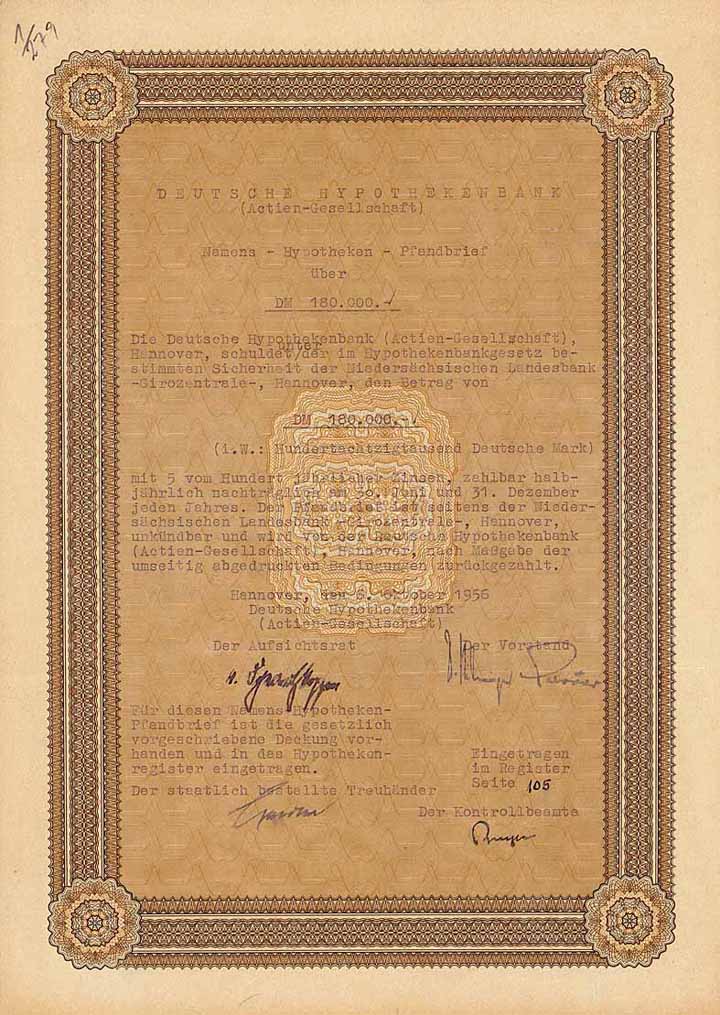 1/279
DEUTSCHE HYPOTHEKENBANK
(Actien-Gesellschaft)
Namens - Hypotheken - Pfandbrief
über
DM 180.000.-
Die Deutsche Hypothekenbank (Actien-Gesellschaft),
Hannover, schuldet/unter der im Hypothekenbankgesetz be-
stimmten Sicherheit der Niedersächsischen Landesbank
-Girozentrale-, Hannover, den Betrag von
DM 180.000.-
(i.W.: Hundertachtzigtausend Deutsche Mark)
mit 5 vom Hundert jährlicher Zinsen, zahlbar halb-
jährlich nachträglich am 30. Juni und 31. Dezember
jeden Jahres. Der Pfandbrief ist seitens der Nieder-
sächsischen Landesbank -Girozentrale-, Hannover,
unkündbar und wird von der Deutsche Hypothekenbank
(Actien-Gesellschaft), Hannover, nach Maßgabe der
umseitig abgedruckten Bedingungen zurückgezahlt.
Hannover, den 6. Oktober 1956
Deutsche Hypothekenbank
(Actien-Gesellschaft)
Der Aufsichtsrat Der Vorstand
Für diesen Namens-Hypotheken-
Pfandbrief ist die gesetzlich
vorgeschriebene Deckung vor-
handen und in das Hypotheken-
register eingetragen.
Eingetragen
im Register
Seite 105
Der staatlich bestellte Treuhänder
Der Kontrollbeamte